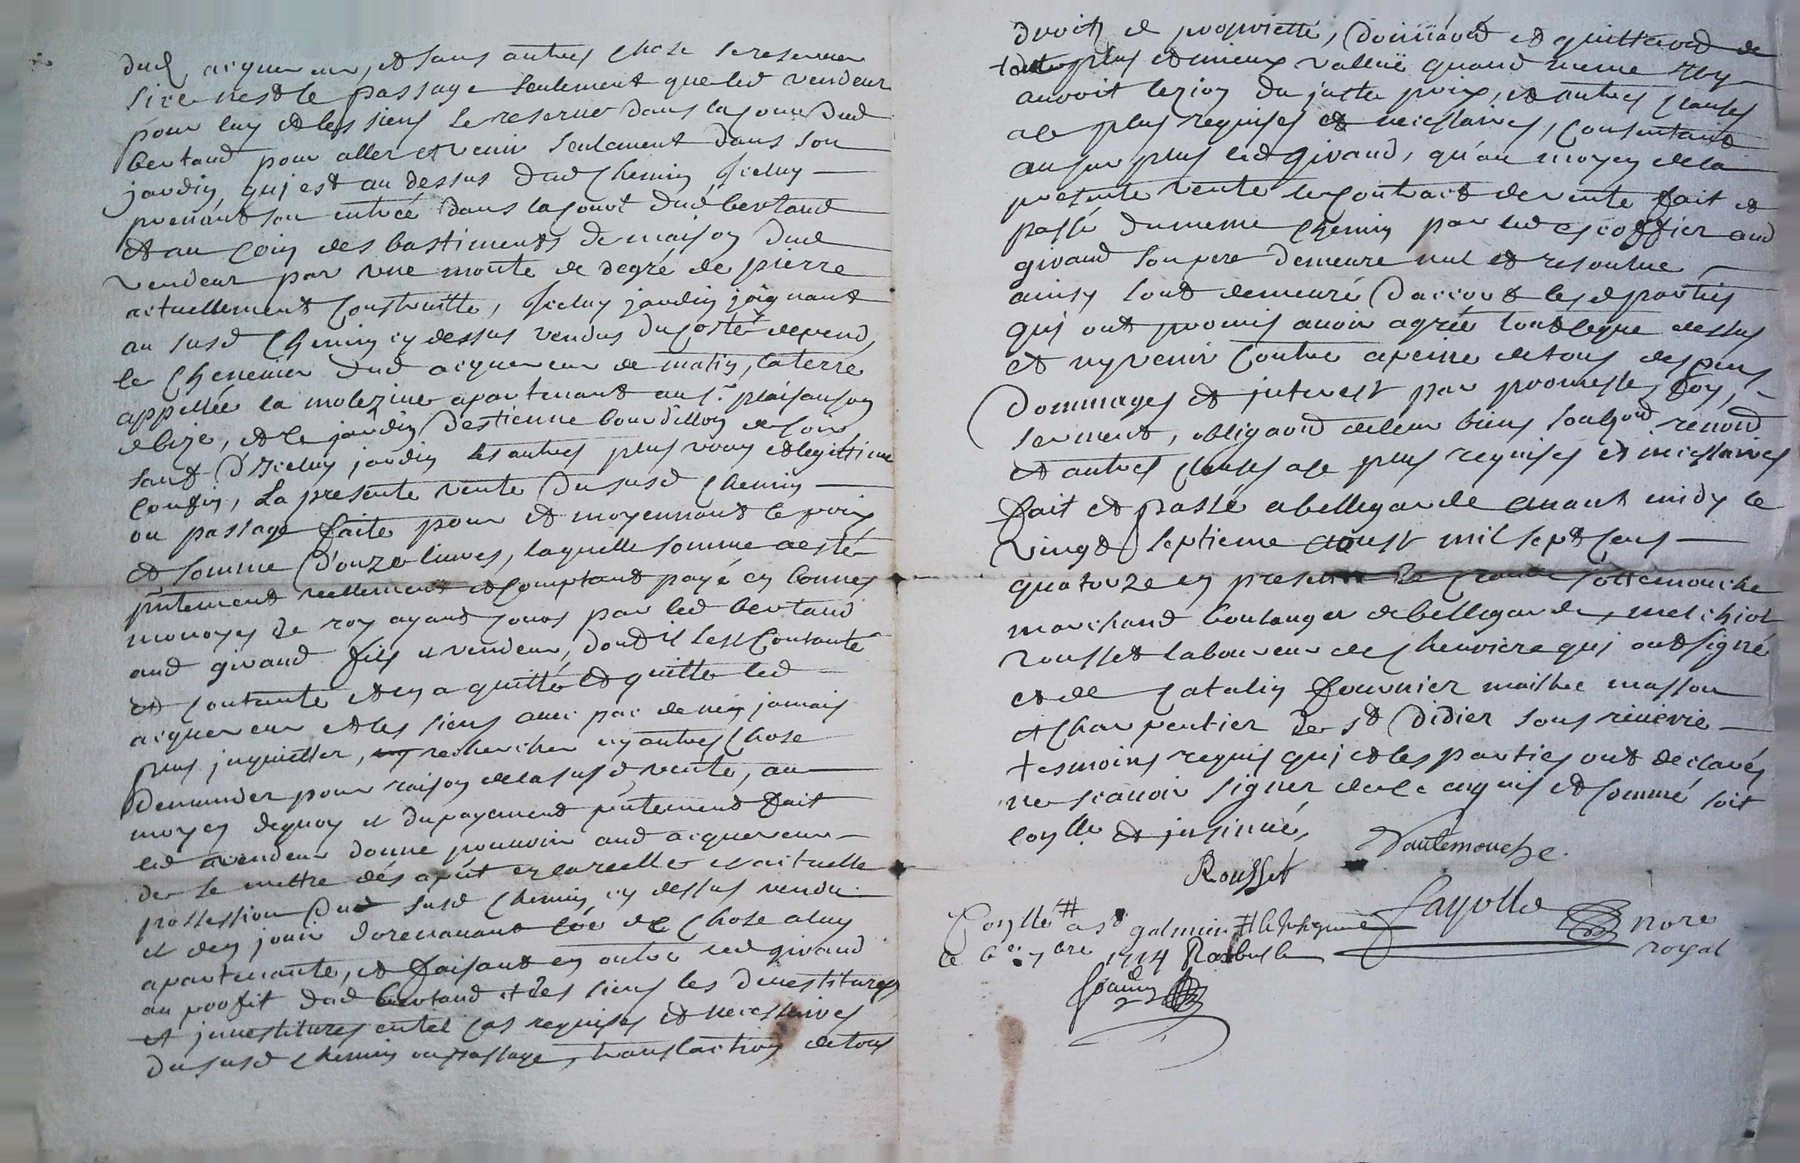 dud acquereur, et sans autres chose se reserver
si ce nest le passage seulement que led vendeur
pour luy et les siens se reserve dans la cour dud
bertaud pour aller et venir seulement dans son
jardin qui est au dessus dud chemin, iceluy
prenant son entrée dans la court dud bertaud
et au coin des bastiments de maison dud
vendeur par une monte de degré de pierre
actuellement construitte, iceluy jardin joignant
au susd chemin cy dessus vendus du costé
le chenevier dud acquereur de matin, la terre
appellée la molezine apartenant au sr
de bize, et le jardin d'estienne bourdillon de soir
sauf d'iceluy jardin les autres plus vrays et legittime
confin, La presente vente du susd chemin
ou passage faite pour et moyennant le prix
et somme d'onze livres, laquelle somme a esté
pntement reellement et comptant payé en bonnes
monoyes de roy ayant cours par led bertaud
aud giraud fils et vendeur, dont il s'est contanté
et contante et en a quitté et quitte led
acquereur et les siens avec pac de n'en jamais
plus inquietter, rechercher ny autres chose
demander pour raison de la susd vente, au
moyen dequoy et du payement pntement fait
led vendeur donne pouvoir aud acquereur
de se mettre dés apnt en la reelle et actuelle
possession dud susd chemin cy dessus vendu
et d'en jouir dorenavant chose a luy
apartenante, et faisant en outre led giraud
au proffit dud bertaud et des siens les devestitures
et investitures en tel cas requises et necessaires
du susd chemin ou passage, translaction de tous
droits et proprietté, donnand et quittand de
toute plus et mieux vallue quand meme il y
auroit lezion du juste prix, et autres clauses
a ce plus requises et necessaires, consentant
au surplus led giraud, qu'au moyen de la
presente vente le contract de vente fait et
passé du meme chemin par led escoffier aud
giraud son pere demeure nul et resoulue
ainsy tout demeuré d'accort lesd parties
qui ont promis avoir agréé tout ce que dessus
et n'y venir contre a peine de tous despens
dommages et interest par promesse, foy,
serment, obligaôn de leur biens renonô
et autres clauses a ce plus requises et necessaires
fait et passé a bellegarde avant midy le
vingt septieme aoust mil sept cens
quatorze en presence de sottemouche
marchand boulanger de bellegarde, melchior
rousset laboureur de cheuvriere qui ont signé
et de catalin fournier maitre masson
et charpentier de st didier sous riverie
tesmoins requis qui et les parties ont declarés
ne scavoir signer de ce enquis et sommé soit
conllé et insinué,
Sautemouche.
Rousset
Fayolle nore
royal
Conllé a st galmier
le 6e 7bre 1714